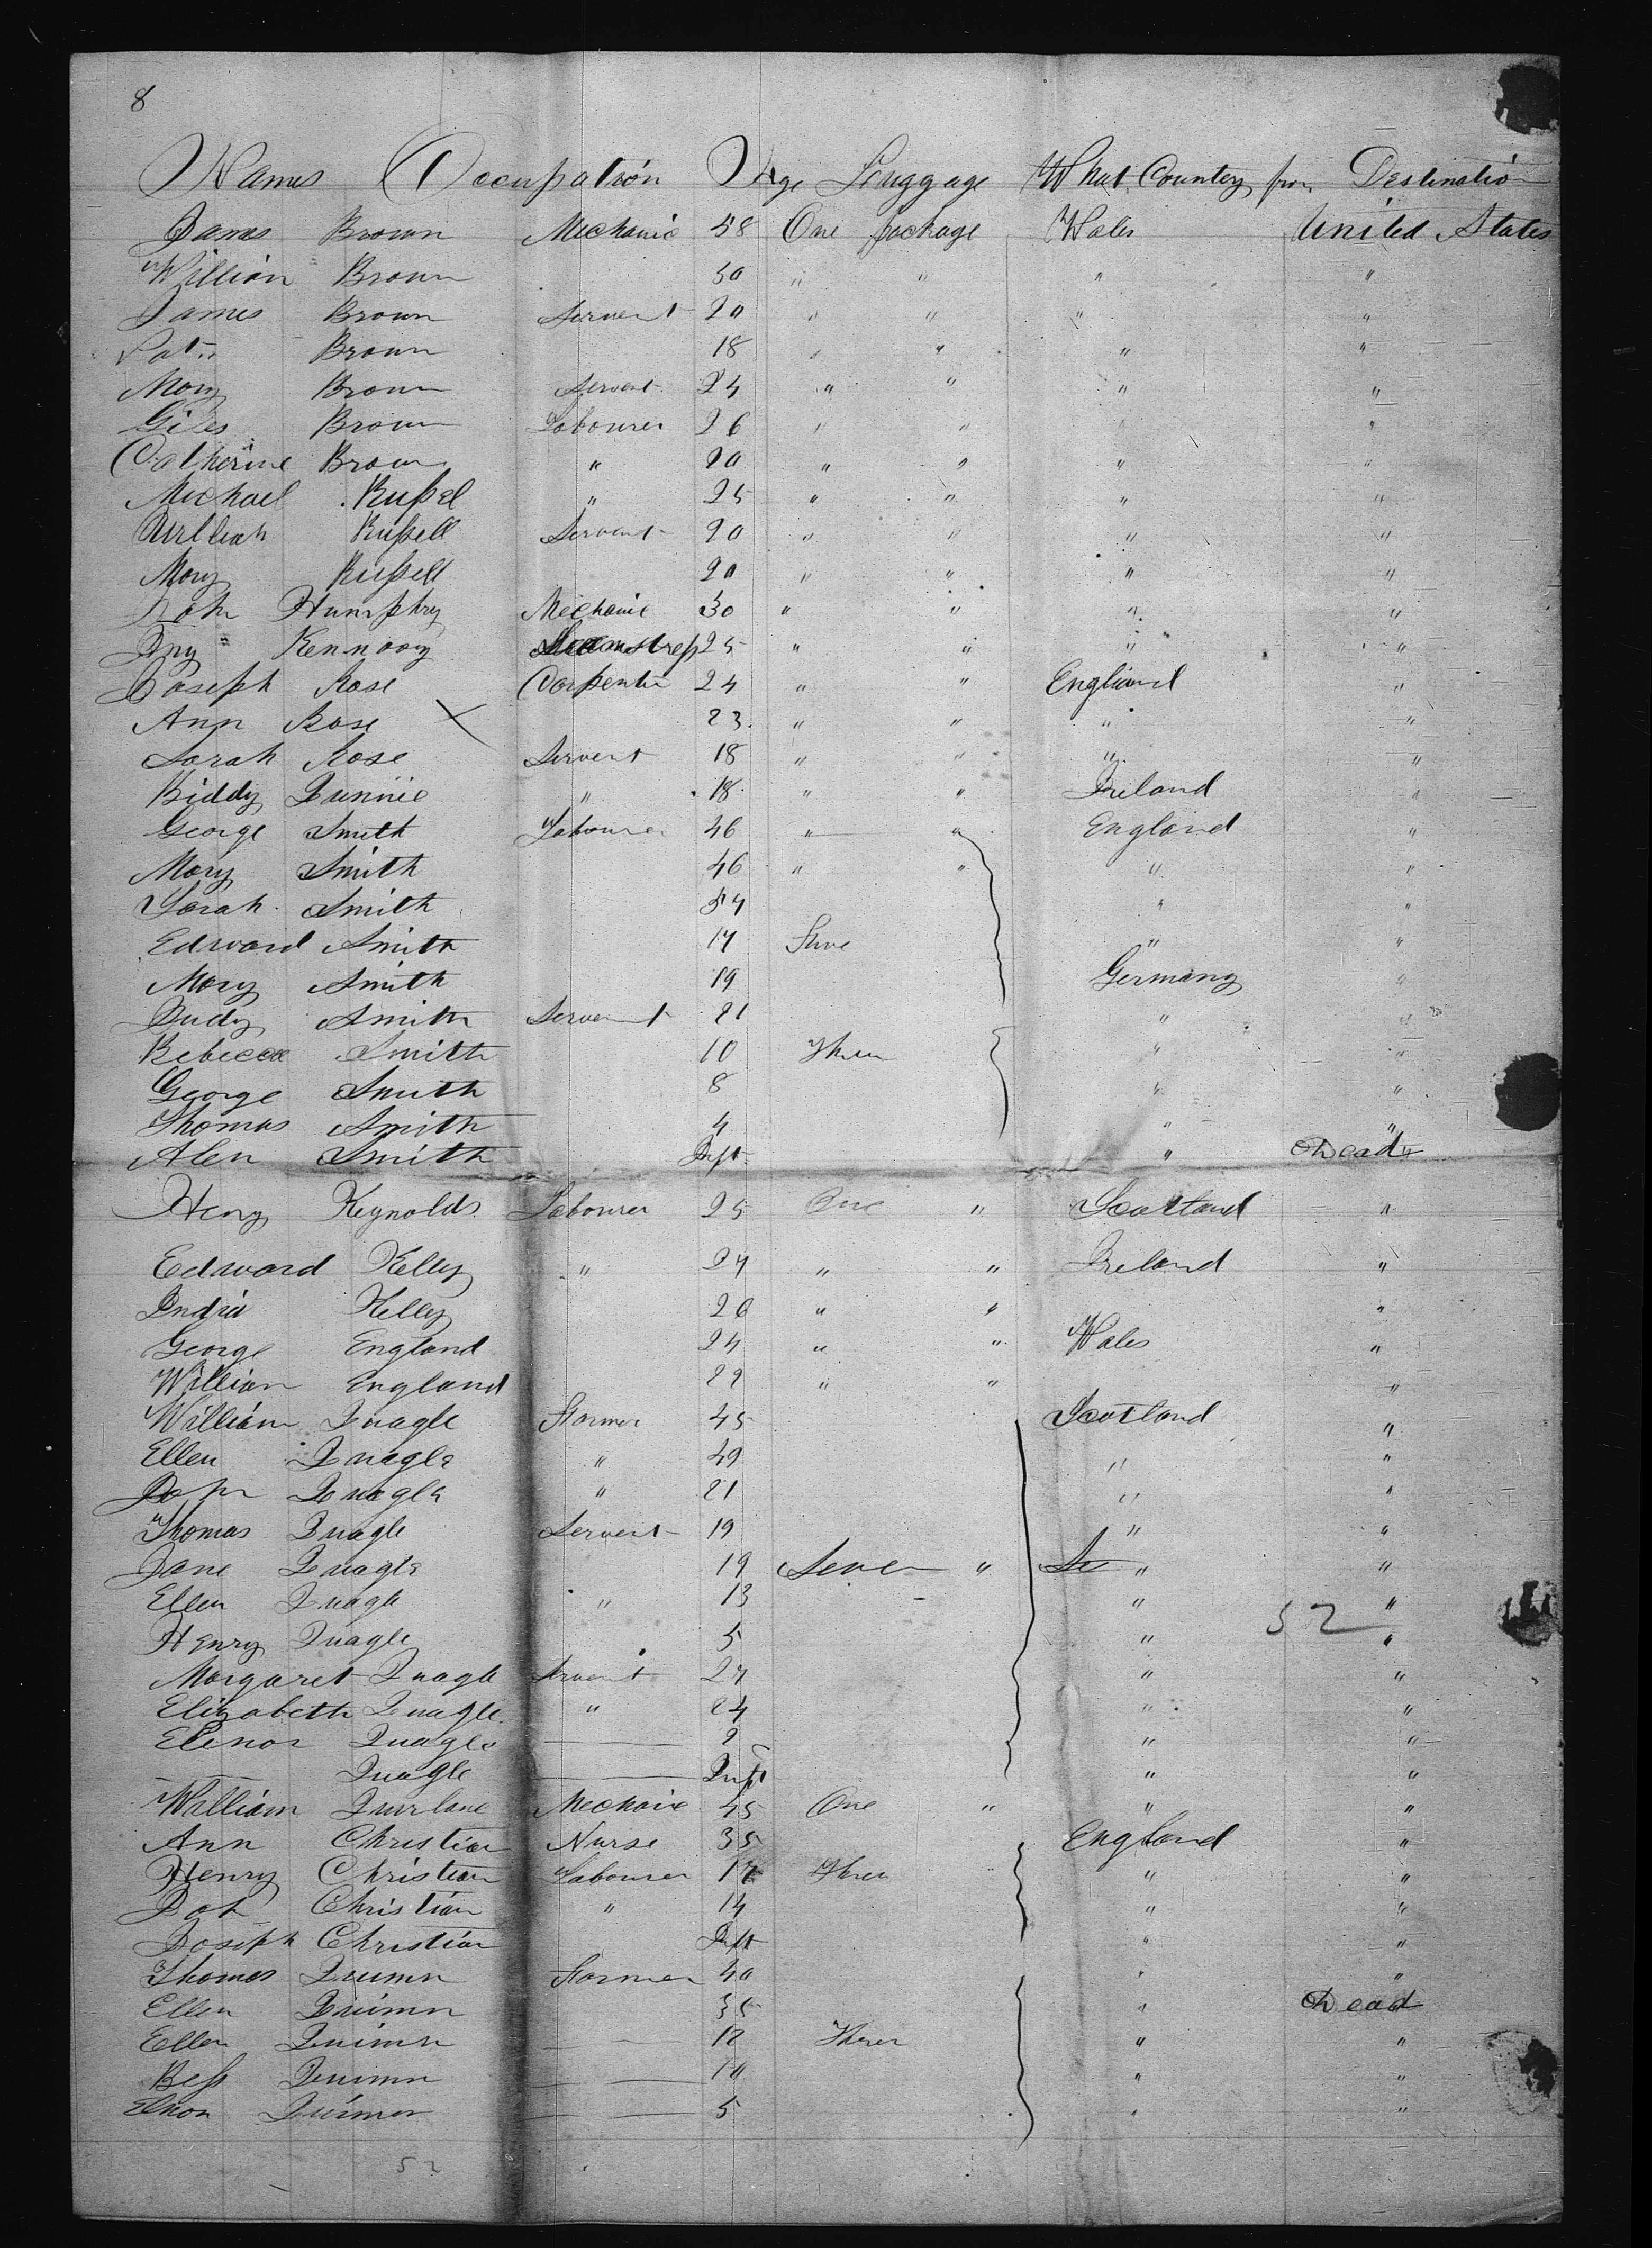 8
Names Occupation Age Lenggage What Country from Destination
James Brown Mechanic 48 One package Wales United States
William Brown 50 " " " "
James Brown Servent 20 " " " "
Pat Brown 18 " " " "
Mary Brown Servent 24 " " " "
Giles Brown Labourer 26 " " " "
Catherine Brown " 20 " " " "
Michael Rußel " 25 " " " "
William Rußell Servent 20 " " " "
Mary Rußell 20 " " " "
John Humphry Mechanic 30 " " " "
Kennoory 25 " " " "
Joseph Rose Carpenter 24 " " England "
Ann Rose X 23 " " " "
Sarah Rose Servent 18 " " " "
Biddy " 18 " " Ireland "
George Smith Labourer 46 " " England "
Mary Smith 46 " " " "
Sarah Smith " "
Edward Smith 17 " "
Mary Smith 19 Germany "
Judy Smith Servent 21 " "
Rebecca Smith 10 Three " "
George Smith 8 " "
Thomas Smith 4 " "
Alen Smith Inft " Dead "
Henry Reynolds Labourer 25 One " Scotland "
Edward Kelly " 24 " " Ireland "
Kelly 20 " " "
George England 24 " " Wales "
William England 22 " " "
William Quagle Farmer 45 Scotland "
Ellen Quagle " 49 " "
John Quagle " 21 " "
Thomas Quagle Servent 19 " "
Jane Quagle 19 Seven " " "
Ellen Quagle " 13 " "
52
Henry Quagle 5 " "
Margaret Quagle Servent 27 " "
Elizabeth Quagle " 24 " "
Elenor Quagle 2 " "
Quagle Inft " "
William Mechanic 45 One " " "
Ann Christian Nurse 35 England "
Henry Christian Labourer 17 Three " "
Joh Christian " 14 " "
Joseph Christian Inft " "
Thomas Quimn Farmer 40 " "
Ellen Quimn 35 " Dead
Ellen Quimn 12 Three " "
Beß Quimn 10 " "
Elnor Quimn 5 " "
52